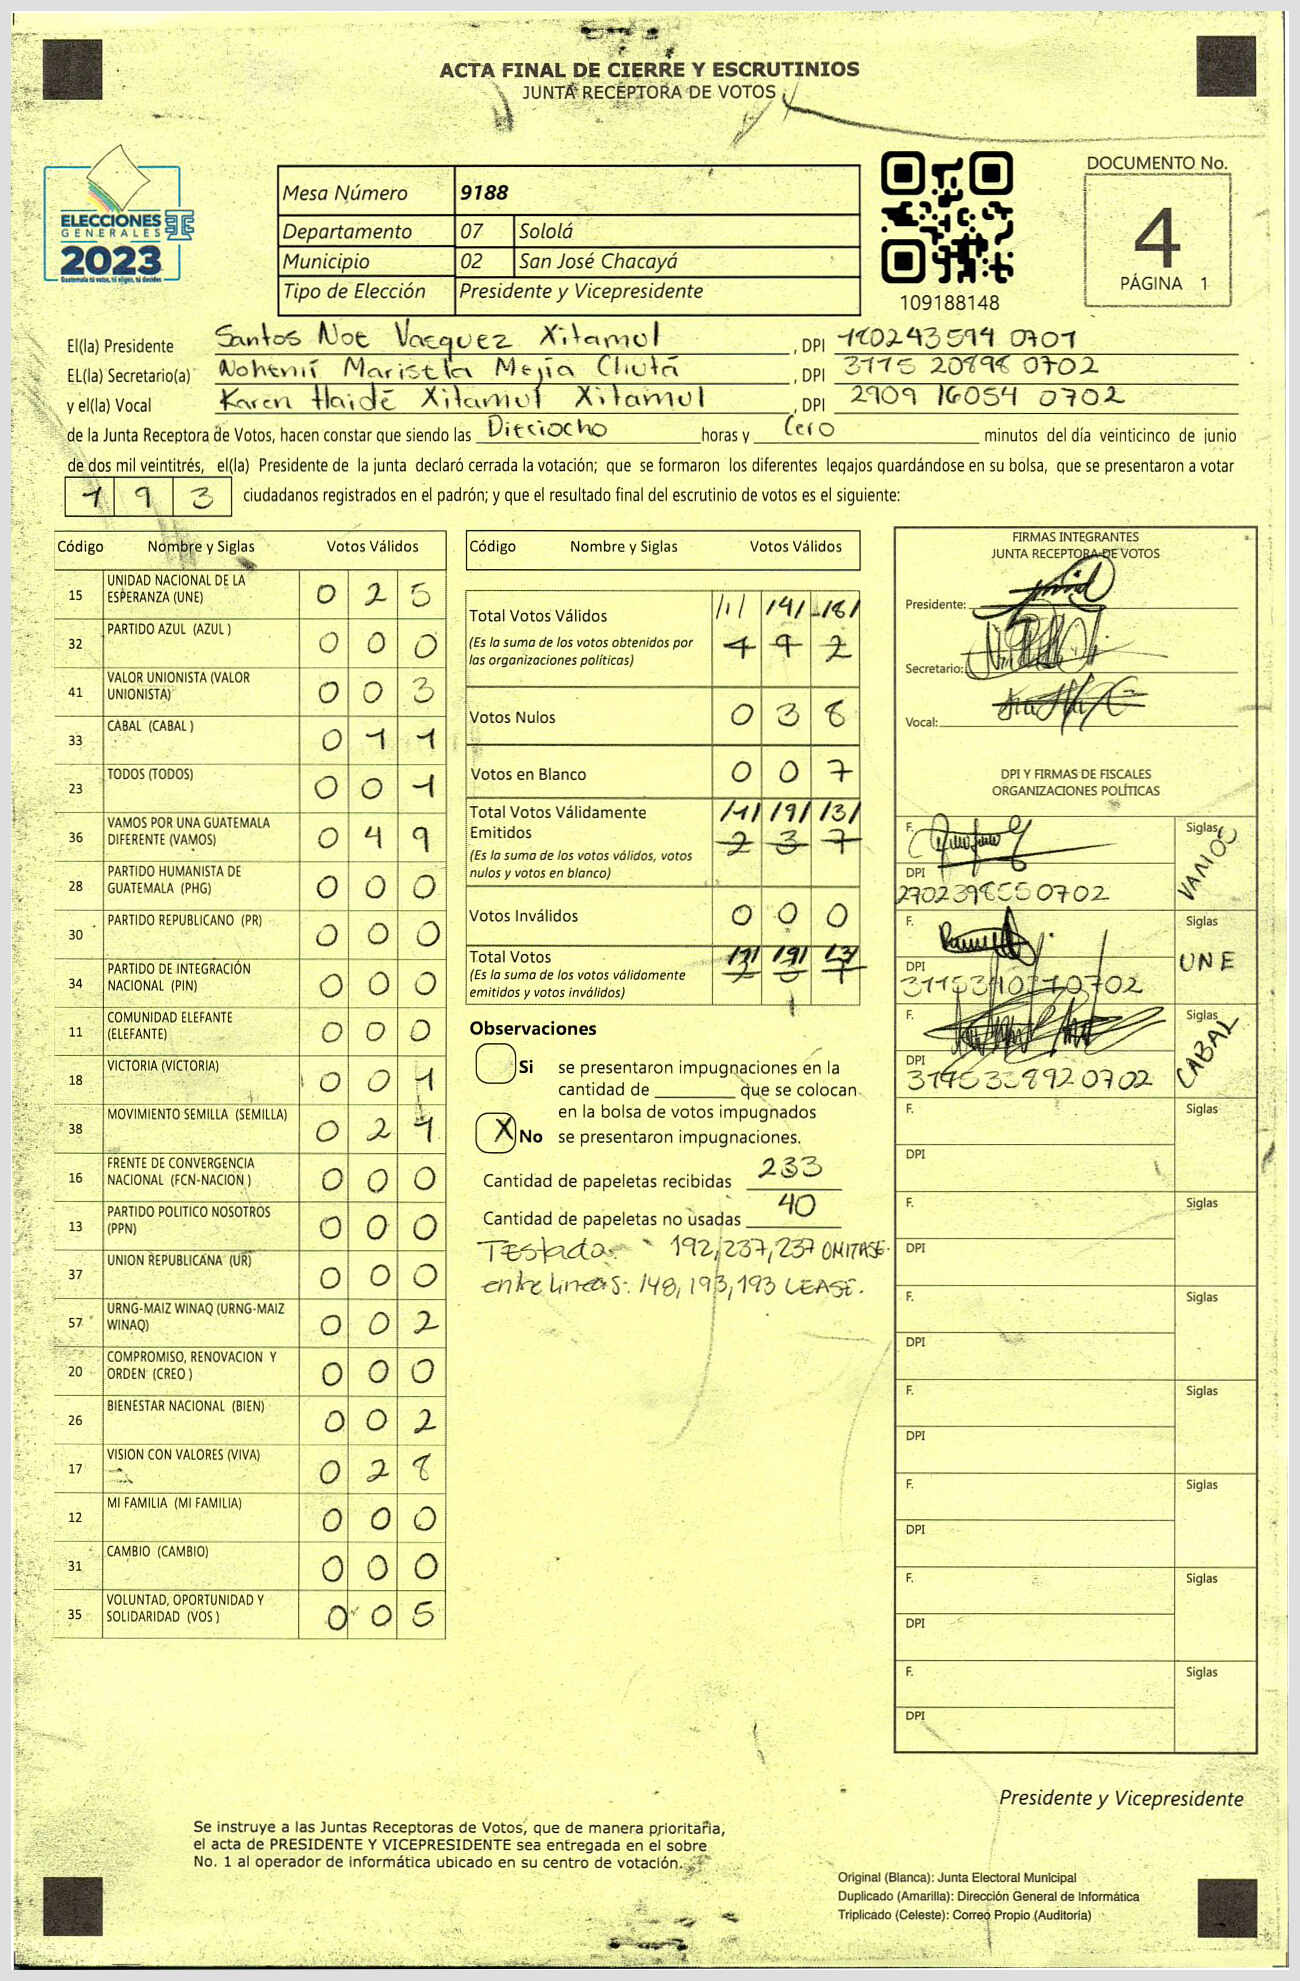 ACTA FINAL DE CIERRE Y ESCRUTINIOS
JUNTA RECEPTORA DE VOTOS
ELECCIONES
GENERALES
2023
Guatemala tú votas, tú eliges, tú decides
Mesa Número 9188
Departamento 07 Sololá
Municipio 02 San José Chacayá
Tipo de Elección Presidente y Vicepresidente
109188148
DOCUMENTO No.
4
PÁGINA 1
El(la) Presidente Santos Noe Vasquez Xitamul, DPI 180243594 0701
EL(la) Secretario(a) Nohemí Marisela Mejía Chutá, DPI 3175 20898 0702
y el(la) Vocal Karen Haidé Xitamul Xitamul, DPI 2909 16054 0702
de la Junta Receptora de Votos, hacen constar que siendo las Dieciocho horas y Cero minutos del día veinticinco de junio
de dos mil veintitrés, el(la) Presidente de la junta declaró cerrada la votación; que se formaron los diferentes legajos quardándose en su bolsa, que se presentaron a votar
193 ciudadanos registrados en el padrón; y que el resultado final del escrutinio de votos es el siguiente:
Código Nombre y Siglas Votos Válidos
15 UNIDAD NACIONAL DE LA ESPERANZA (UNE) 0 2 5
32 PARTIDO AZUL (AZUL ) 0 0 0
41 VALOR UNIONISTA (VALOR UNIONISTA) 0 0 3
33 CABAL (CABAL ) 0 1 1
23 TODOS (TODOS) 0 0 1
36 VAMOS POR UNA GUATEMALA DIFERENTE (VAMOS) 0 4 9
28 PARTIDO HUMANISTA DE GUATEMALA (PHG) 0 0 0
30 PARTIDO REPUBLICANO (PR) 0 0 0
34 PARTIDO DE INTEGRACIÓN NACIONAL (PIN) 0 0 0
11 COMUNIDAD ELEFANTE (ELEFANTE) 0 0 0
18 VICTORIA (VICTORIA) 0 0 1
38 MOVIMIENTO SEMILLA (SEMILLA) 0 2 1
16 FRENTE DE CONVERGENCIA NACIONAL (FCN-NACION ) 0 0 0
13 PARTIDO POLITICO NOSOTROS (PPN) 0 0 0
37 UNION REPUBLICANA (UR) 0 0 0
57 URNG-MAIZ WINAQ (URNG-MAIZ WINAQ) 0 0 2
20 COMPROMISO, RENOVACION Y ORDEN (CREO ) 0 0 0
26 BIENESTAR NACIONAL (BIEN) 0 0 2
17 VISION CON VALORES (VIVA) 0 2 8
12 MI FAMILIA (MI FAMILIA) 0 0 0
31 CAMBIO (CAMBIO) 0 0 0
35 VOLUNTAD, OPORTUNIDAD Y SOLIDARIDAD (VOS ) 0 0 5
Código Nombre y Siglas Votos Válidos
Total Votos Válidos /1/ /4/ /8/
(Es la suma de los votos obtenidos por las organizaciones políticas) 1 9 2
Votos Nulos 0 3 8
Votos en Blanco 0 0 7
Total Votos Válidamente Emitidos /1/ /9/ /3/
2 3 7
(Es la suma de los votos válidos, votos nulos y votos en blanco)
Votos Inválidos 0 0 0
Total Votos /1/ /9/ /3/
(Es la suma de los votos válidamente emitidos y votos inválidos) 2 3 7
Observaciones
Si se presentaron impugnaciones en la
cantidad de ________ que se colocan
en la bolsa de votos impugnados
X No se presentaron impugnaciones.
Cantidad de papeletas recibidas 233
Cantidad de papeletas no usadas 40
Testado: 192, 237, 237 OMITASE.
entre lineas: 148, 193, 193 LEASE.
FIRMAS INTEGRANTES
JUNTA RECEPTORA DE VOTOS
Presidente:
Secretario:
Vocal:
DPI Y FIRMAS DE FISCALES
ORGANIZACIONES POLÍTICAS
F. Siglas VAMOS
DPI
F. Siglas UNE
DPI
F. Siglas CABAL
DPI
F. Siglas
DPI
F. Siglas
DPI
F. Siglas
DPI
F. Siglas
DPI
F. Siglas
DPI
F. Siglas
DPI
F. Siglas
DPI
Presidente y Vicepresidente
Se instruye a las Juntas Receptoras de Votos, que de manera prioritaria,
el acta de PRESIDENTE Y VICEPRESIDENTE sea entregada en el sobre
No. 1 al operador de informática ubicado en su centro de votación.
Original (Blanca): Junta Electoral Municipal
Duplicado (Amarilla): Dirección General de Informática
Triplicado (Celeste): Correo Propio (Auditoria)